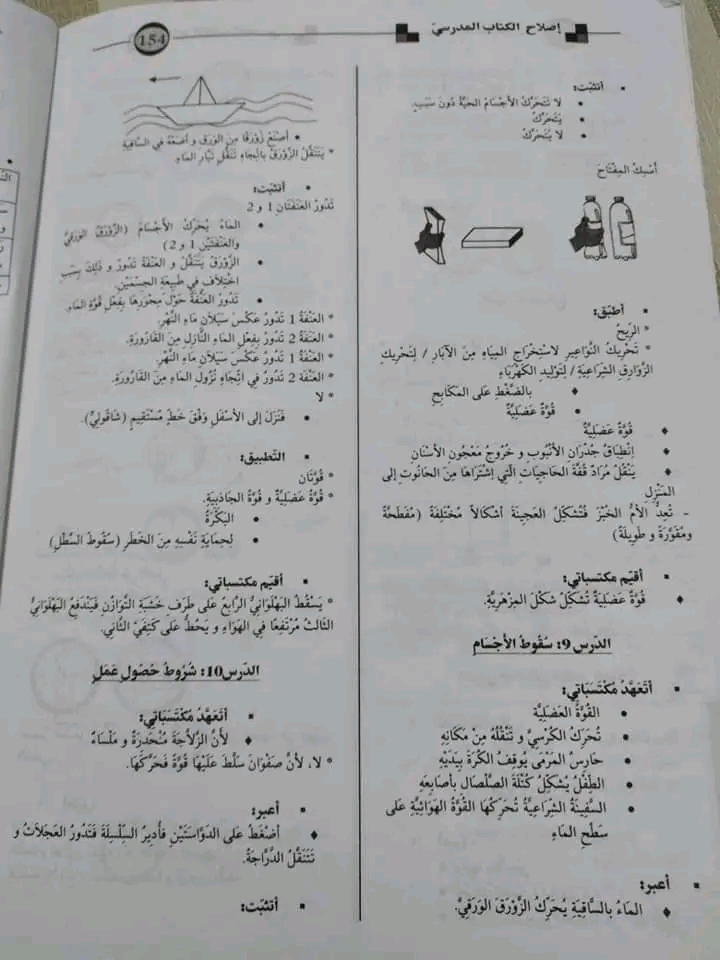 إصلاح الكتاب المدرسيّ
154
أتثبّت:
لا تَتَحَرَّكُ الأَجْسَامُ الحَيَّةُ دُونَ سَبَبٍ.
يَتَحَرَّكُ
لا يَتَحَرَّكُ
أَمْسِكُ المِفْتَاحَ
أطبّق:
* الرِّيحُ
* تَحْرِيكُ النَّوَاعِيرِ لاسْتِخْرَاجِ المِيَاهِ مِنَ الآبَارِ / لِتَحْرِيكِ
الزَّوَارِقِ الشِّرَاعِيَّةِ / لِتَوْلِيدِ الكَهْرَبَاءِ
بِالضَّغْطِ عَلَى المَكَابِحِ
قُوَّةٌ عَضَلِيَّةٌ
قُوَّةٌ عَضَلِيَّةٌ
اِنْطِبَاقُ جُدْرَانِ الأُنْبُوبِ وَ خُرُوجُ مَعْجُونِ الأَسْنَانِ
يَنْقُلُ مُرَادٌ قُفَّةَ الحَاجِيَاتِ الَّتِي اِشْتَرَاهَا مِنَ الحَانُوتِ إِلَى
المَنْزِلِ
- تُعِدُّ الأُمُّ الخُبْزَ فَتُشَكِّلُ العَجِينَةَ أَشْكَالاً مُخْتَلِفَةً (مُفَطَّحَةً
وَمُقَوَّرَةً وَ طَوِيلَةً)
أقيّم مكتسباتي:
قُوَّةٌ عَضَلِيَّةٌ تُشَكِّلُ شَكْلَ المِزْهَرِيَّةِ.
الدّرس 9: سقوط الأجسام
أتعهّدُ مُكْتَسَبَاتِي:
القُوَّةُ العَضَلِيَّةُ
تُحَرِّكُ الكُرْسِيَّ وَ تَنْقُلُهُ مِنْ مَكَانِهِ
حَارِسُ المَرْمَى يُوقِفُ الكُرَةَ بِيَدَيْهِ
الطِّفْلُ يُشَكِّلُ كُتْلَةَ الصَّلْصَالِ بِأَصَابِعِهِ
السَّفِينَةُ الشِّرَاعِيَّةُ تُحَرِّكُهَا القُوَّةُ الهَوَائِيَّةُ عَلَى
سَطْحِ المَاءِ
أعبر:
المَاءُ بِالسَّاقِيَةِ يُحَرِّكُ الزَّوْرَقَ الوَرَقِيَّ.
أَصْنَعُ زَوْرَقًا مِنَ الوَرَقِ وَ أَضَعُهُ فِي السَّاقِيَةِ
* يَتَنَقَّلُ الزَّوْرَقُ بِاتِّجَاهِ تَنَقُّلِ تَيَّارِ المَاءِ.
أتثبّت:
تَدُورُ العَنَفَتَانِ 1 و 2
المَاءُ يُحَرِّكُ الأَجْسَامَ (الزَّوْرَقَ الوَرَقِيَّ
وَالعَنَفَتَيْنِ 1 و 2)
الزَّوْرَقُ يَتَنَقَّلُ وَ العَنَفَةُ تَدُورُ وَ ذَلِكَ بِسَبَبِ
اخْتِلاَفٍ فِي طَبِيعَةِ الجِسْمَيْنِ.
تَدُورُ العَنَفَةُ حَوْلَ مِحْوَرِهَا بِفِعْلِ قُوَّةِ المَاءِ.
* العَنَفَةُ 1 تَدُورُ عَكْسَ سَيَلاَنِ مَاءِ النَّهْرِ.
* العَنَفَةُ 2 تَدُورُ بِفِعْلِ المَاءِ النَّازِلِ مِنَ القَارُورَةِ.
* العَنَفَةُ 1 تَدُورُ عَكْسَ سَيَلاَنِ مَاءِ النَّهْرِ.
* العَنَفَةُ 2 تَدُورُ فِي اتِّجَاهِ نُزُولِ المَاءِ مِنَ القَارُورَةِ.
* لا
فَتَنْزِلُ إِلَى الأَسْفَلِ وَفْقَ خَطٍّ مُسْتَقِيمٍ (شَاقُولِيٍّ).
التّطبيق:
* قُوَّتَانِ
* قُوَّةٌ عَضَلِيَّةٌ وَ قُوَّةُ الجَاذِبِيَّةِ.
البَكْرَةُ
لِحِمَايَةِ نَفْسِهِ مِنَ الخَطَرِ (سُقُوطِ السَّطْلِ)
أقيّم مكتسباتي:
* يَسْقُطُ البَهْلَوَانِيُّ الرَّابِعُ عَلَى طَرَفِ خَشَبَةِ التَّوَازُنِ فَيَنْدَفِعُ البَهْلَوَانِيُّ
الثَّالِثُ مُرْتَفِعًا فِي الهَوَاءِ وَ يَحُطُّ عَلَى كَتِفَيْ الثَّانِي.
الدّرس10: شُرُوطُ حُصُولِ عَمَلٍ
أتعهّدُ مُكْتَسَبَاتِي:
لِأَنَّ الزَّلاَّجَةَ مُنْحَدِرَةٌ وَ مَلْسَاءُ
* لا، لأَنَّ صَفْوَانَ سَلَّطَ عَلَيْهَا قُوَّةً فَحَرَّكَهَا.
أعبر:
أَضْغَطُ عَلَى الدَّوَّاسَتَيْنِ فَأُدِيرُ السِّلْسِلَةَ فَتَدُورُ العَجَلاَتُ وَ
تَتَنَقَّلُ الدَّرَّاجَةُ.
أتثبّت: